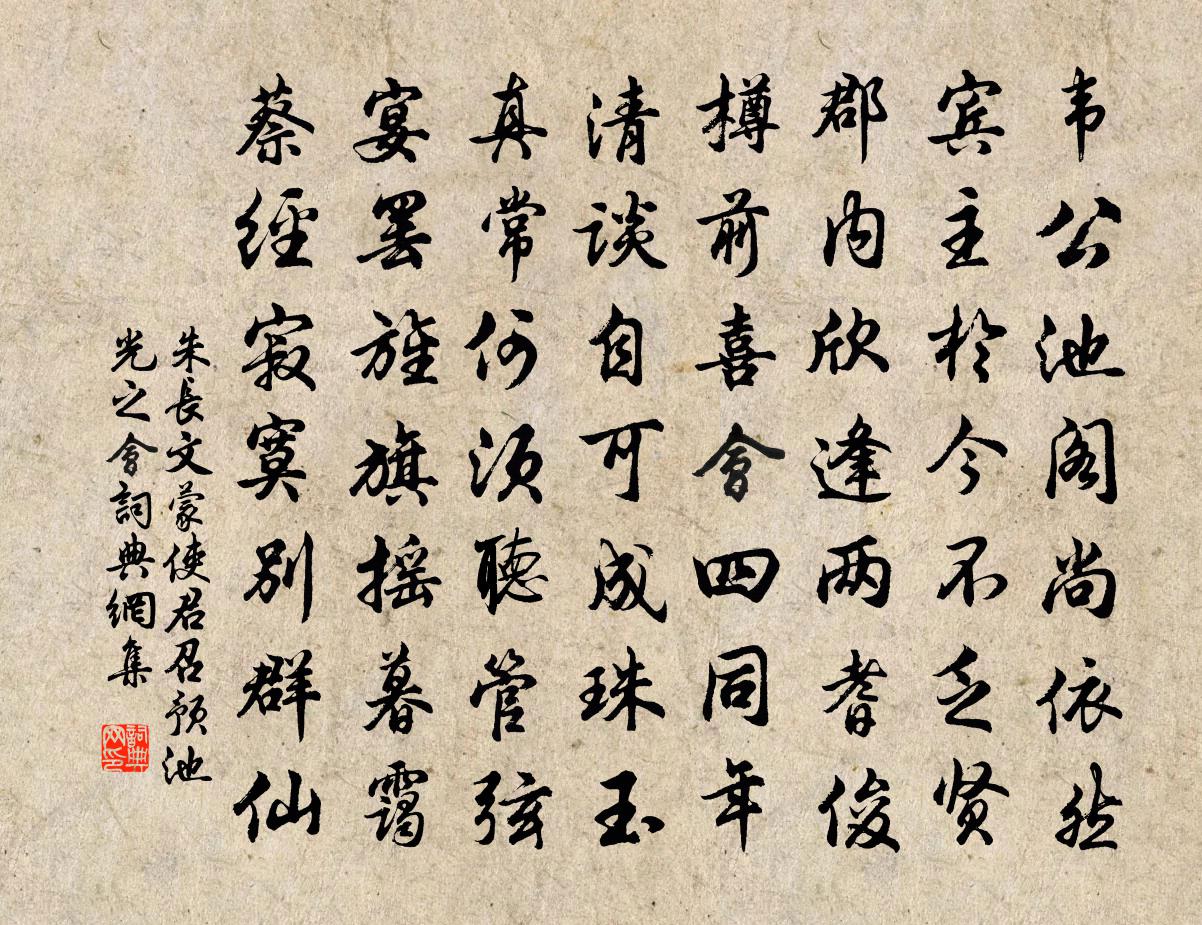 韦公池阁尚依然
宾主於今不乏贤
郡内欣逢两耆俊
樽前喜會四同年
清谈自可成珠玉
真常何须聴管弦
宴罢旌旗摇暮霭
蔡經寂寞别群仙
朱長文蒙使君召预池
光之會詞典網集
詞典
网印